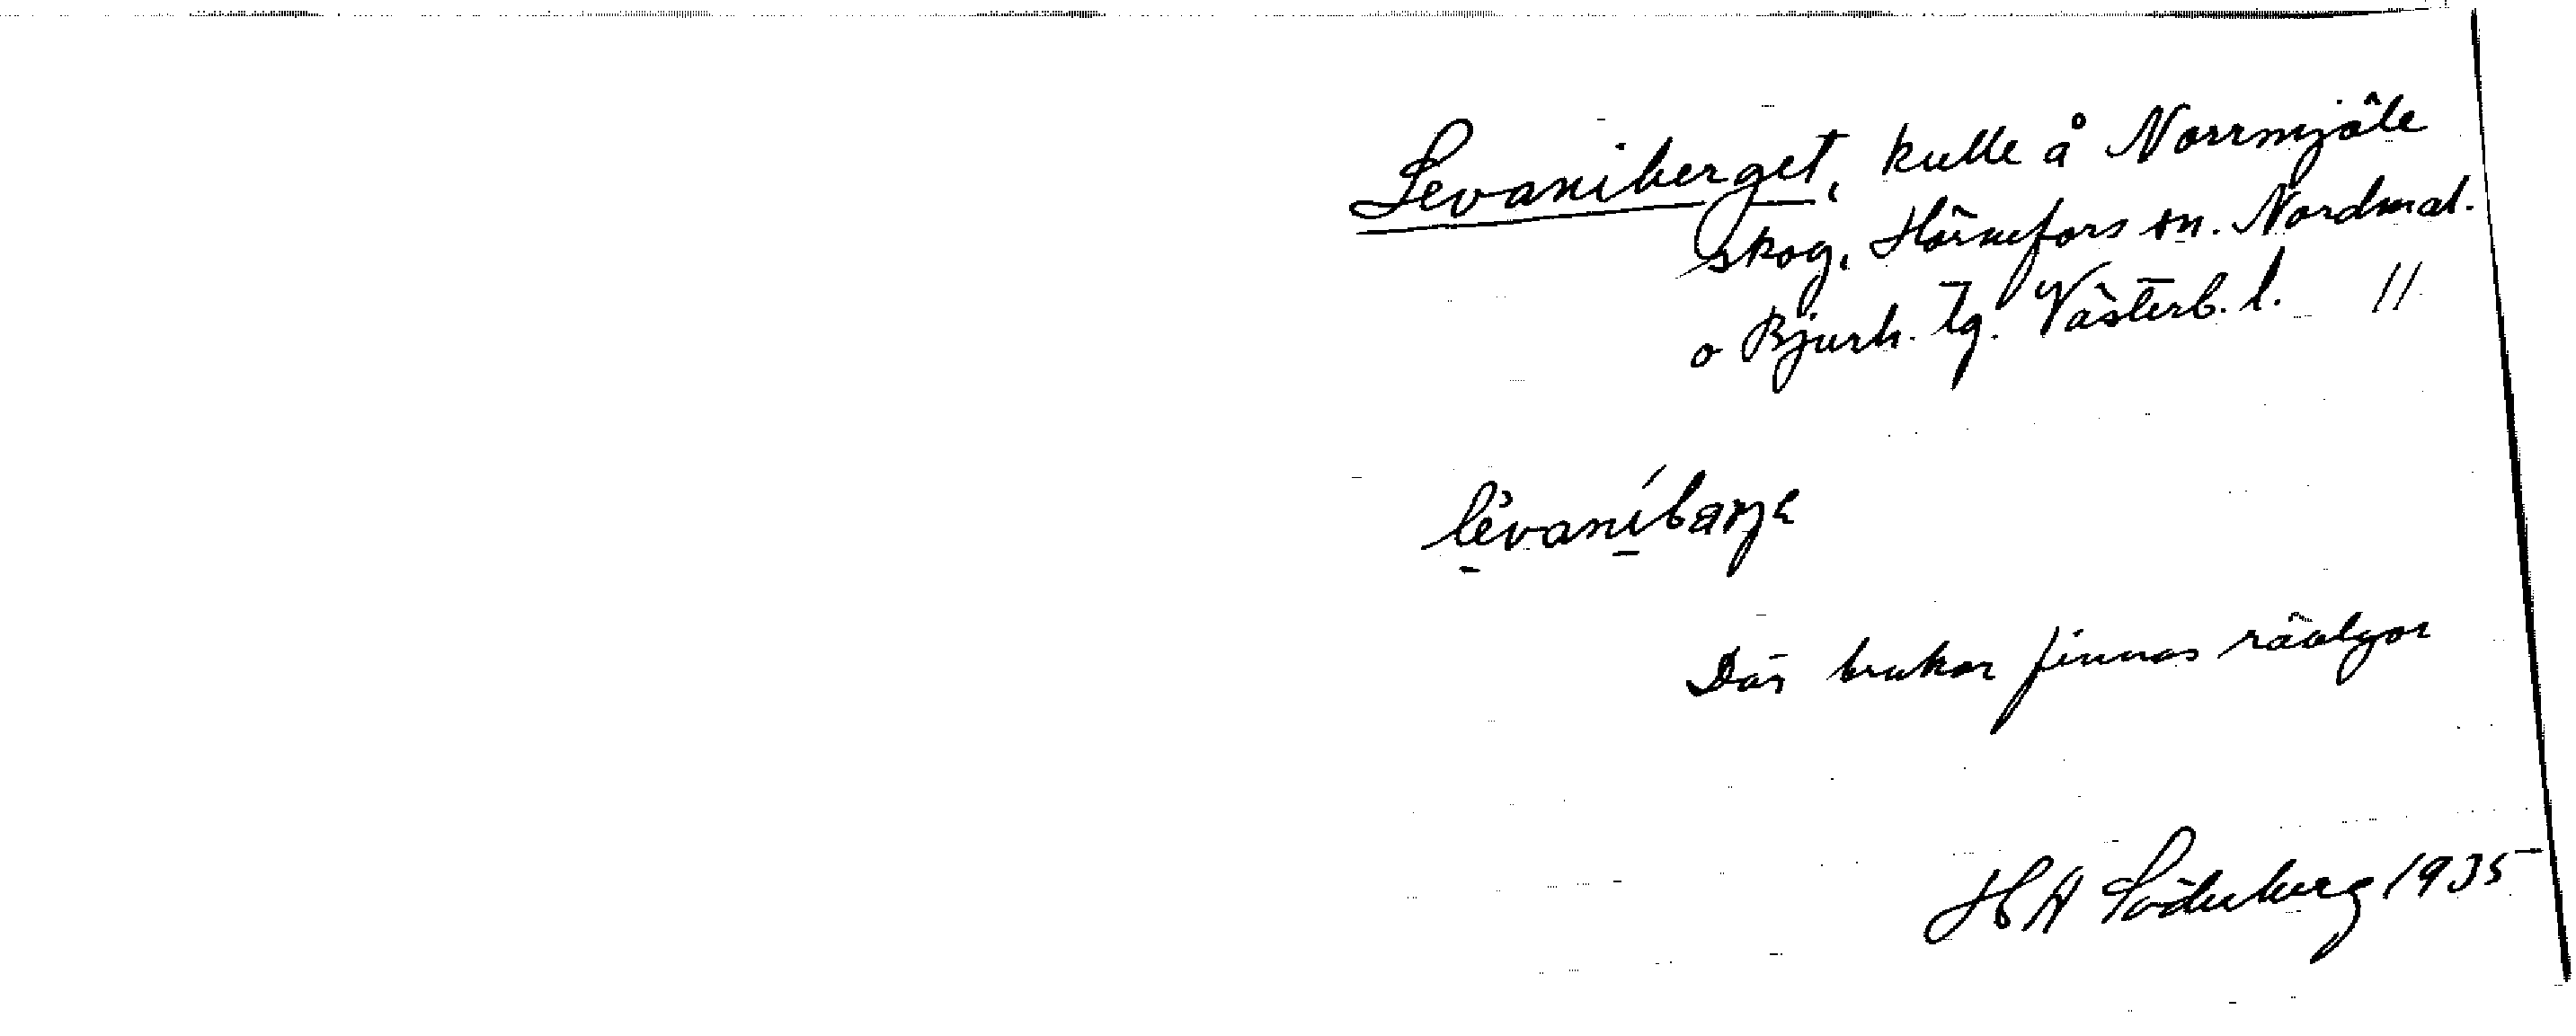 Levaniberget, kulle å Norrmjöle
skog, Hörnefors sn. Nordmal.
o Bjurh. tg. Västerb. l. 11
lèvaníbarje
Där brukar finnas rävlyor
H A Söderberg 1935